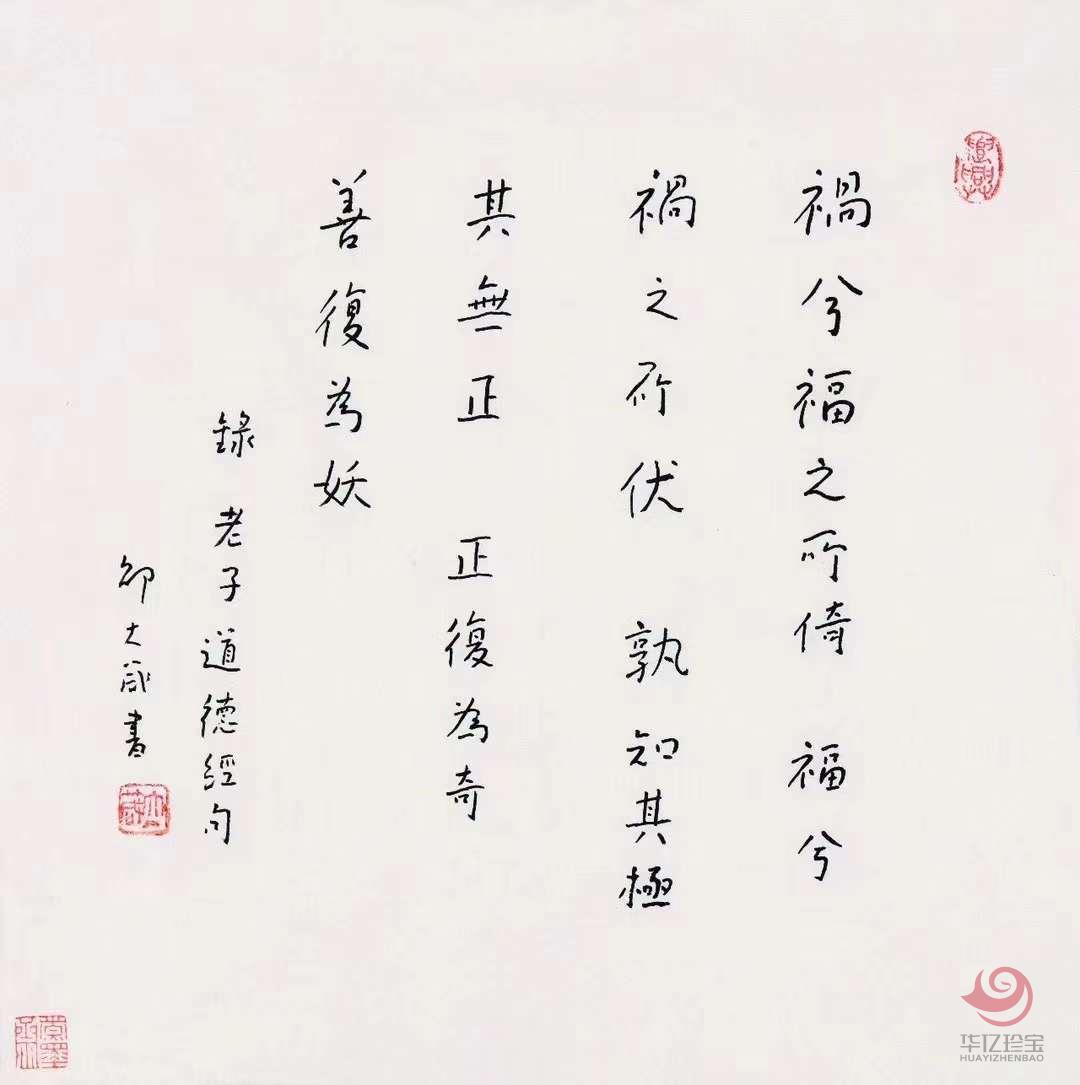 禍兮福之所倚 福兮
禍之所伏 孰知其極
其無正 正復為奇
善復為妖
錄 老子道德經句
邵大箴書
华亿珍宝
HUAYIZHENBAO